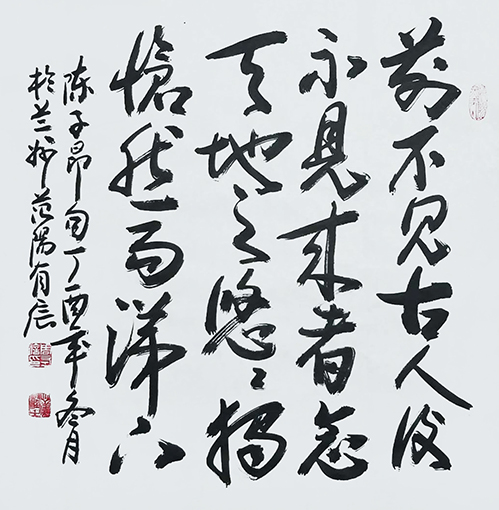 前不見古人後
不見来者念
天地之悠悠獨
愴然而涕下
陈子昂句丁酉年冬月
於兰州范陽有辰